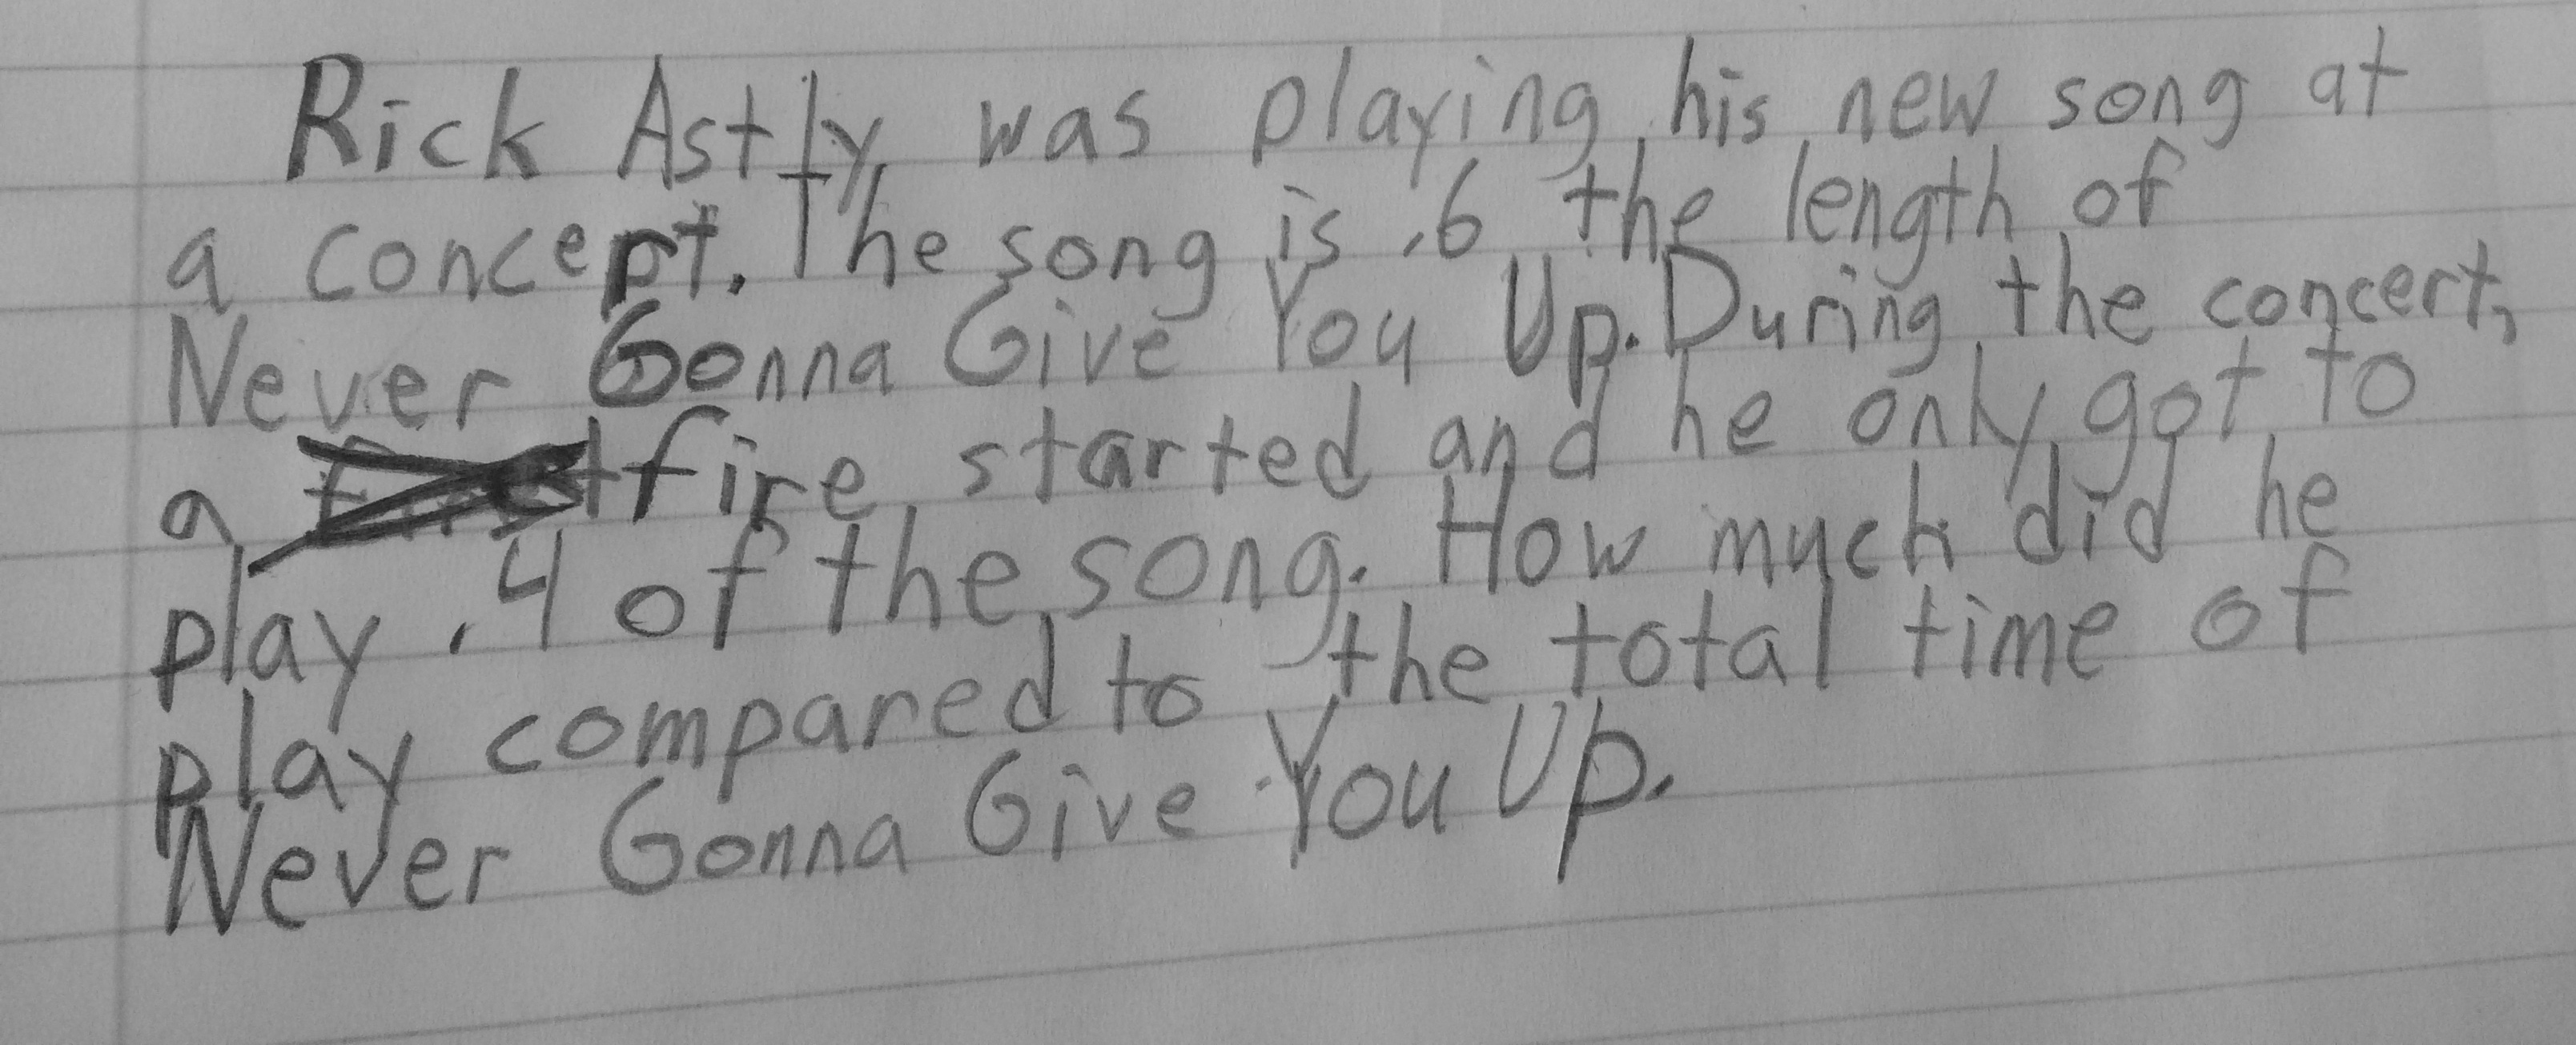 Rick Astly was playing his new song at
a concert. The song is .6 the length of
Never Gonna Give You Up. During the concert,
a fire started and he only got to
play .4 of the song. How much did he
play compared to the total time of
Never Gonna Give You Up.